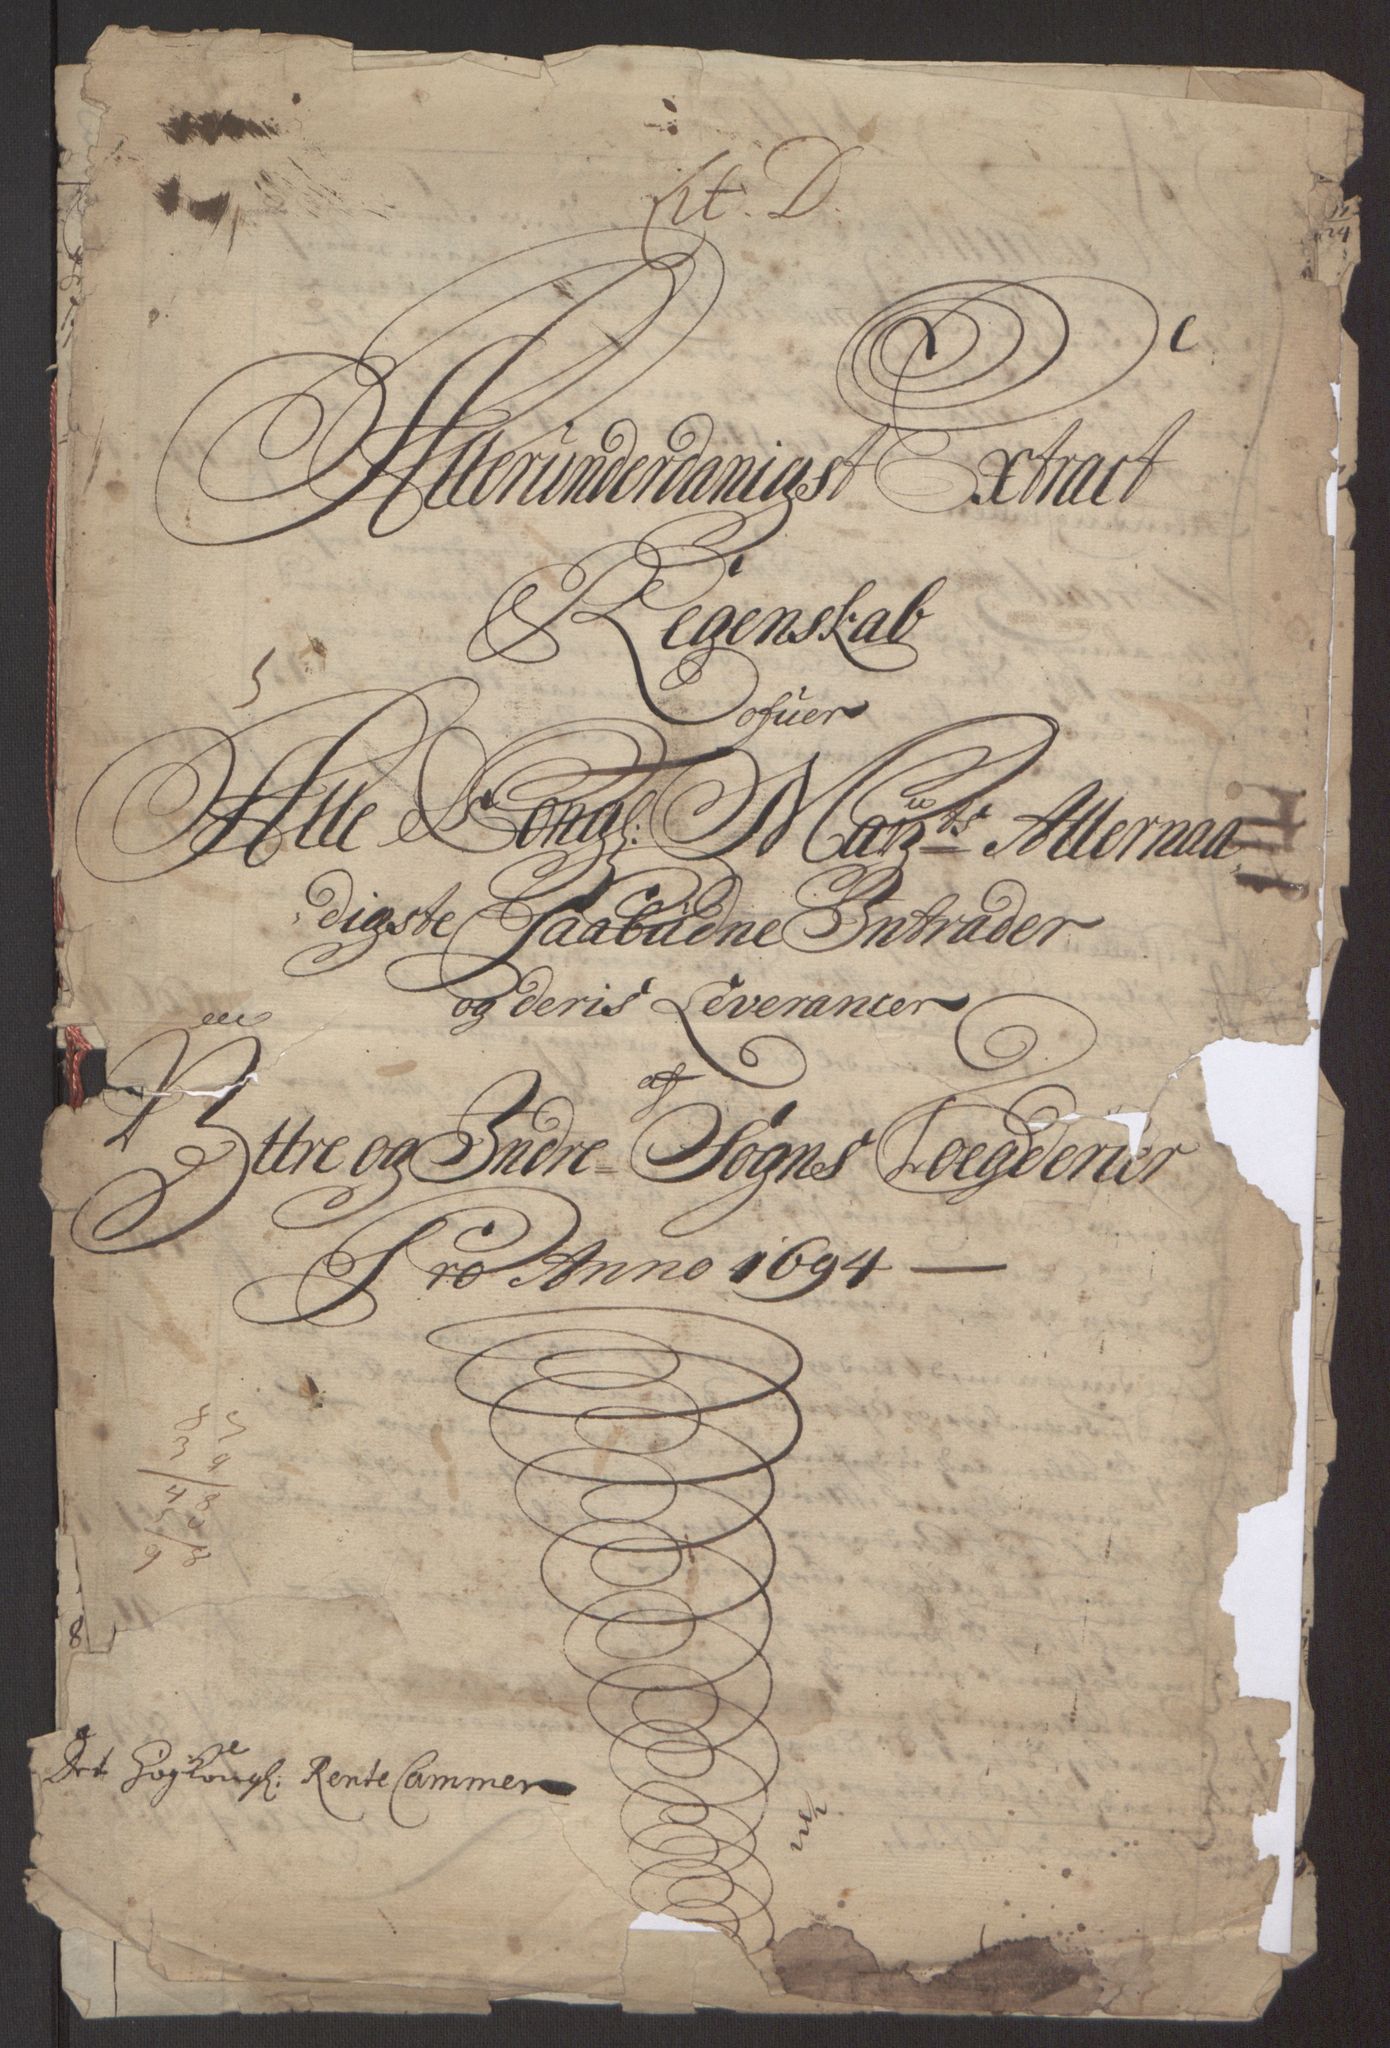 Lit. D.
Allerunderdanigst Extract
Regenskab
ofuer
Alle Kongl: Maÿts Allernaa
digste Paabudne Intrader
og deris Leverancer
af
Yttre og Indre Sogns Loegderier
Pro Anno 1694
5
8 5
3 9
4 8
5 0
9 8
8
Det Høg Kongl: Rente Cammer